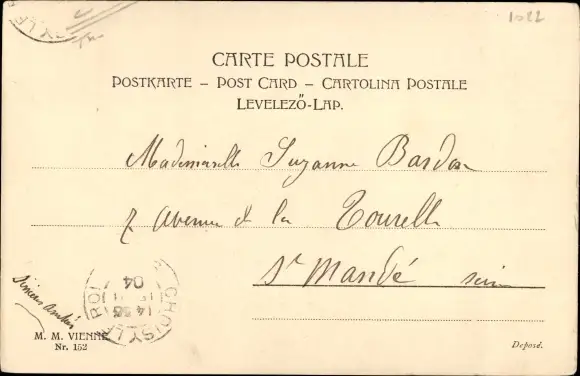 1022
CARTE POSTALE
POSTKARTE – POST CARD – CARTOLINA POSTALE
LEVELEZŐ-LAP.
Mademoiselle Suzanne Bardon
7 Avenue de la Tourelle
St Mandé Seine
CHOISY-LE-ROI
04
M. M. VIENNE
Nr. 152
Deposé.